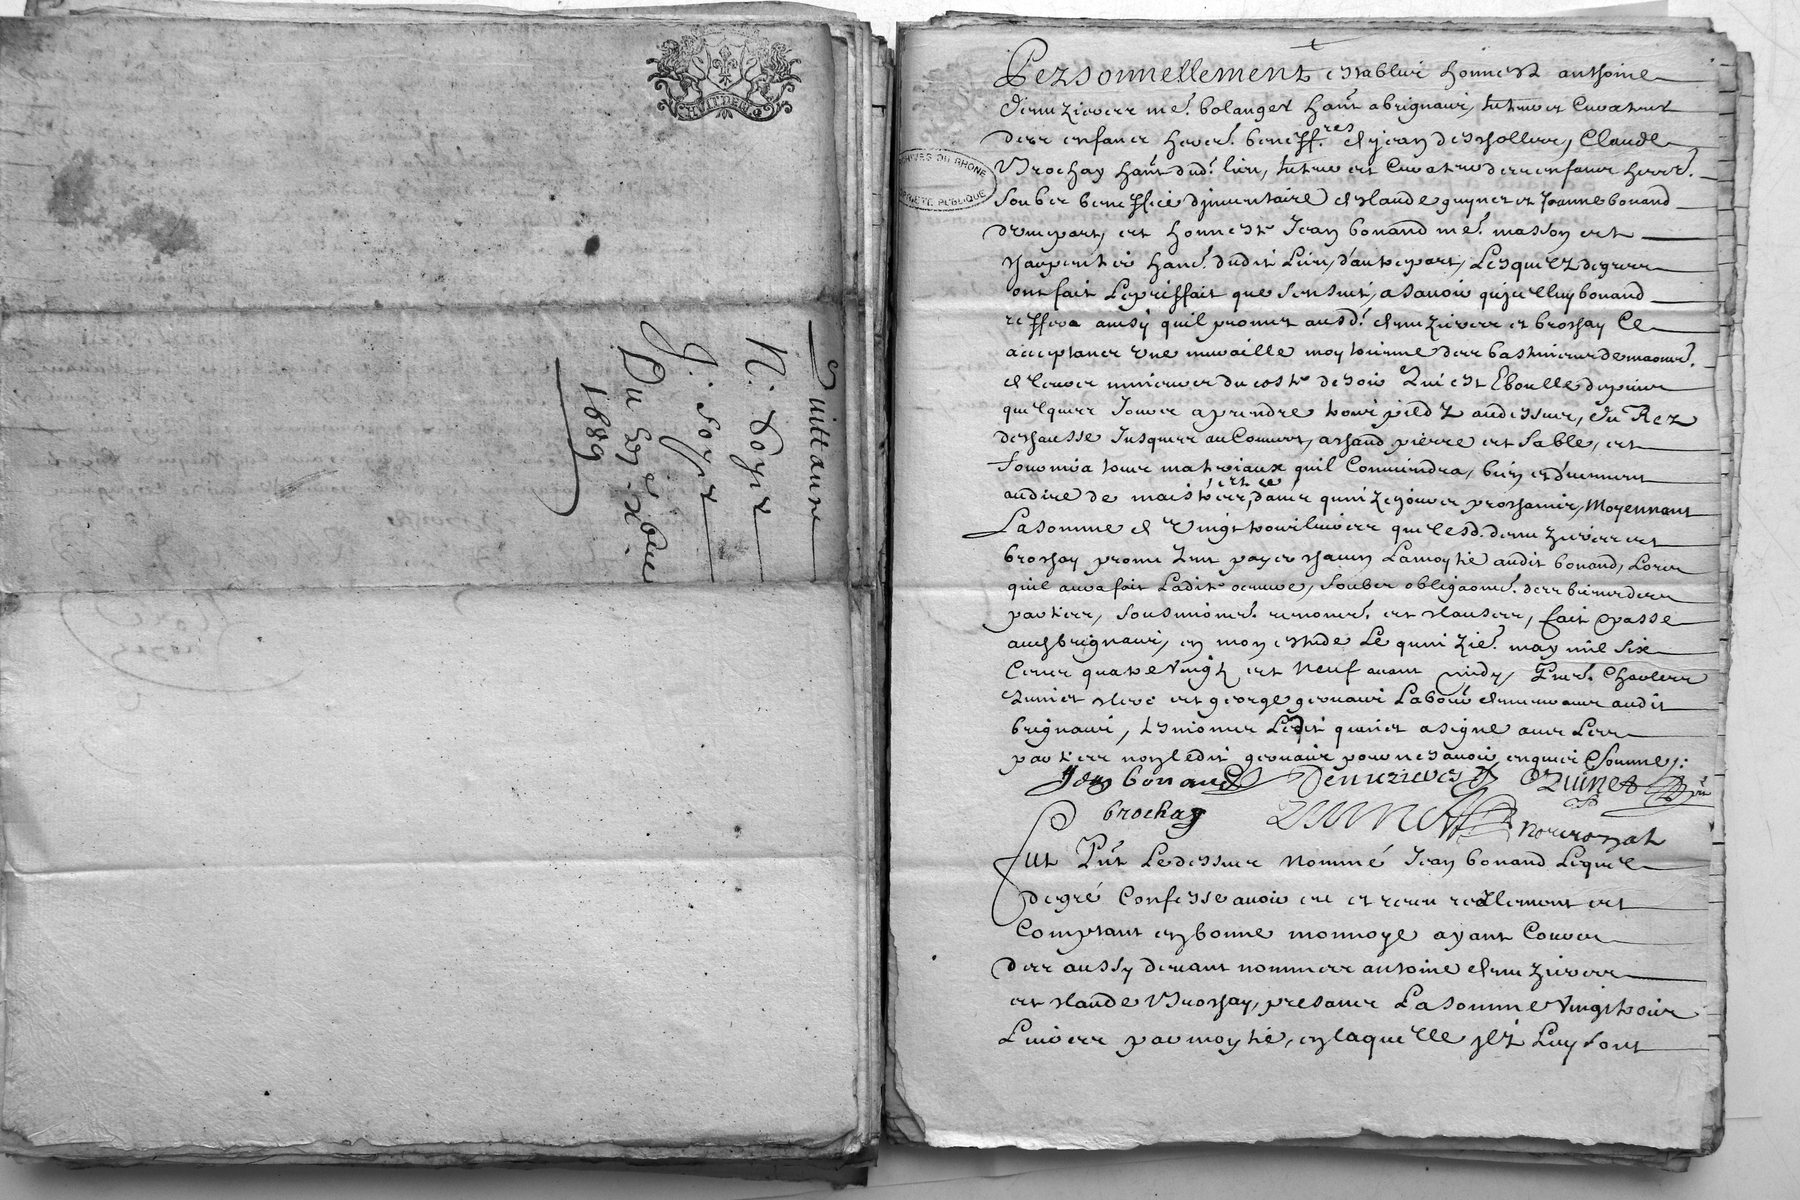 HUITDEN
Quittance
N. Soyez
J. Soyez
Du 20.e Xbre
1689
Personnellement establis honneste anthoine
Denuzieres me. bolanger hant a brignais, tuteur et curateur
des enfans heres. beneff.res de jean deshollieres, Claude
Brochay hant dud. lieu, tuteur et curateur des enfans heres.
ARCHIVES DU RHONE
PROPRIETE PUBLIQUE
soubz beneffice djnventaire de Claude guynet et Jeanne bonand
dune part, et honneste Jean bonand me. masson et
charpentier hant. dudit lieu, d'autre part, Lesquelz de gre
ont fait Le prisfait que sensuit, a savoir qu'jcelluy bonand
reffera ainsy quil promet ausd. denuzieres et brochay Ce
acceptans une muraille moytoienne des bastimens de maons.
du costé de soir Qui est Eboullé depuis
quelques Jours a prendre trois piedz au dessus, du Rez
dechausse Jusques au Couvert, a chaud pierre et sable, et
fournira tous matereaux quil Conviendra, bien et deument
au dire de maistres, et ce dans quinze jours prochains, Moyennant
La somme de Vingt trois livres que lesd. denuzieres et
brochay promettent payer chacun La moytié audit bonand, Lors
quil aura fait Ladite oeuvre, soubz obligaons. des biens des
parties, soubmions. renoncons. et clauses, fait et passé
audit brignais, en mon estude Le quinzie. may mil six
Cens quatre vingtz et neuf avant midy, Pnts. Charles
Quinet clerc et george gervais Labour. demeurans audit
brignais, tesmoins Ledit quinet a signé avec Les
parties non ledit gervais pour ne savoir enquis et sommé:
Jean bonand Denuzieres Quinet
brochay Quinet Nore royal
Fut Pnt Le dessus nommé Jean bonand Lequel
de gré Confesse avoir eu et receu reellement et
Comptant en bonne monnoye ayant Cours
des aussy devant nommes antoine denuzieres
et claude Brochay, presans La somme vingt trois
Livres par moytié, en laquelle jlz Luy sont